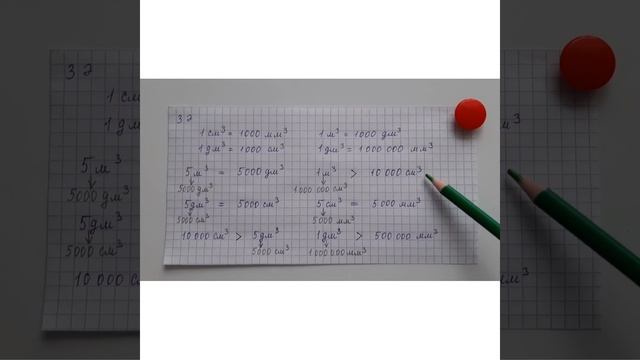 32
1 см³ = 1000 мм³ 1 м³ = 1000 дм³
1 дм³ = 1000 см³ 1 дм³ = 1 000 000 мм³
5 м³ = 5000 дм³ 1 м³ > 10 000 см³
5000 дм³ 1 000 000 см³
5 дм³ = 5000 см³ 5 см³ = 5 000 мм³
5000 см³ 5000 мм³
10 000 см³ > 5 дм³ 1 дм³ > 500 000 мм³
5000 см³ 1 000 000 мм³